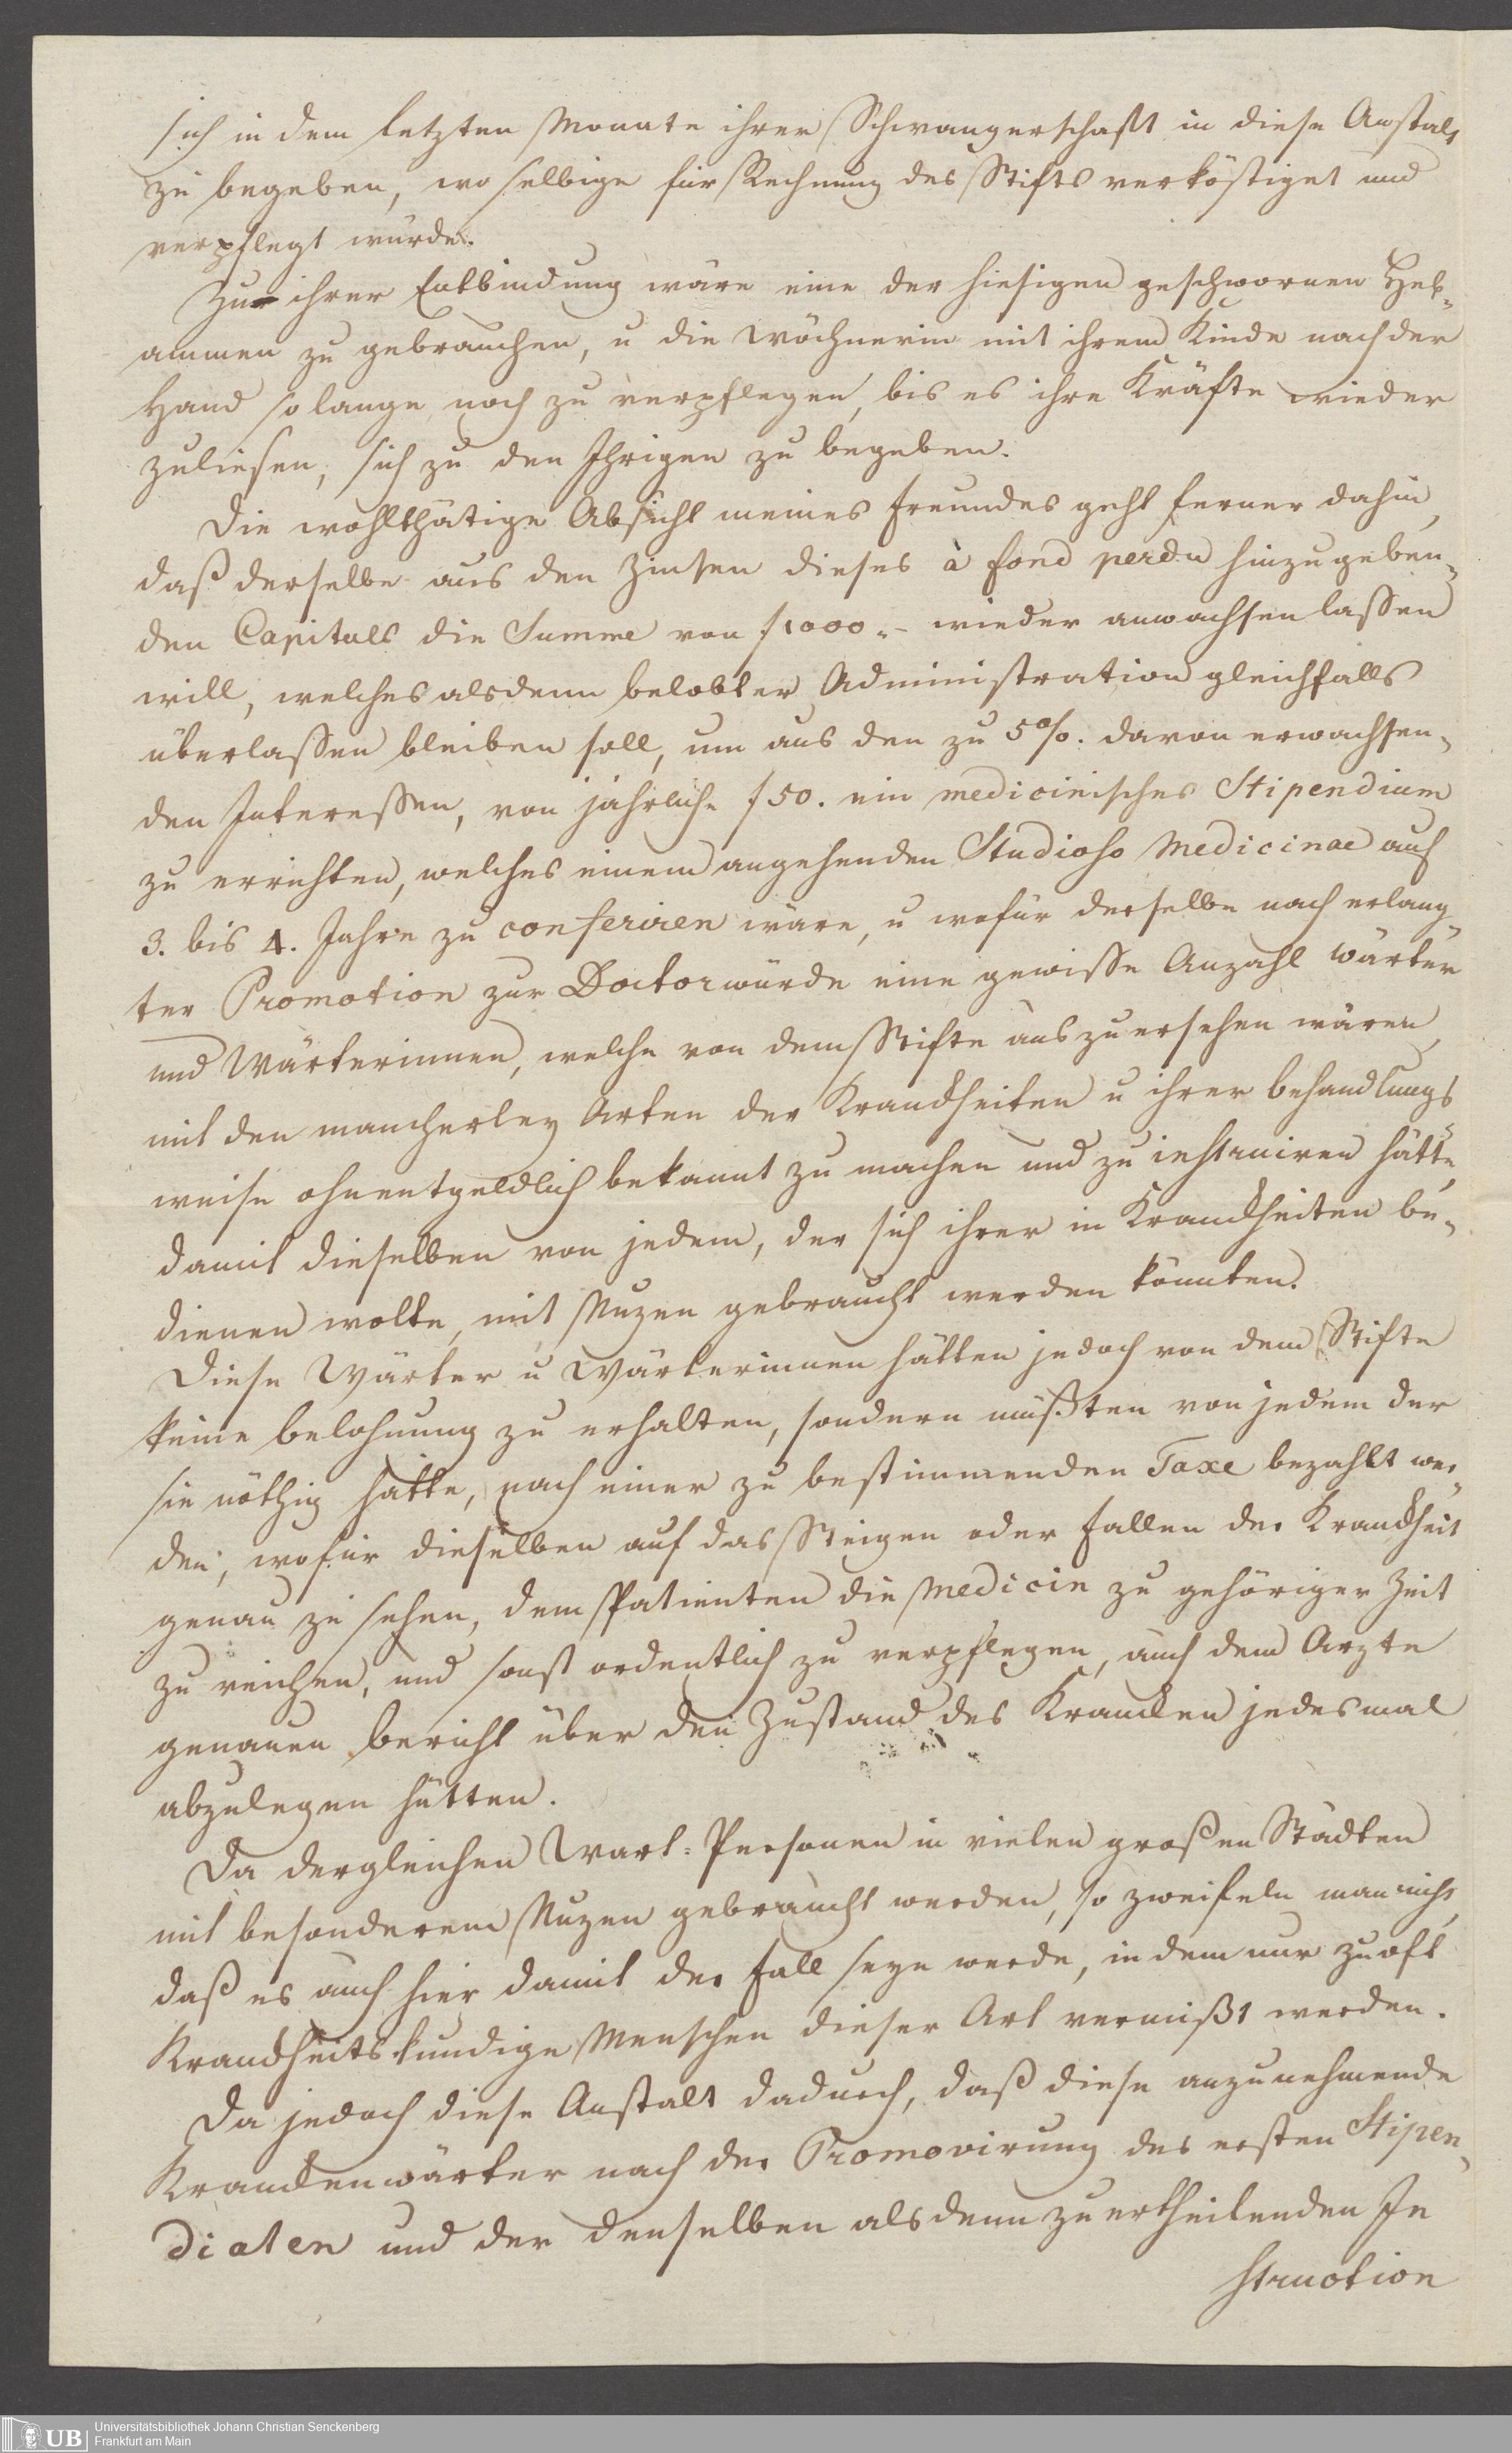 sich in dem letzten Monate ihrer Schwangerschaft in diese Anstalt
zu begeben, wo selbige für Rechnung des Stifts verköstiget und
verpflegt würde.
Zu ihrer Entbindung wäre eine der hiesigen geschwornen Heb-
ammen zu gebrauchen, u die Wöchnerin mit ihrem Kinde nach der
Hand so lange noch zu verpflegen, bis es ihre Kräfte wieder
zuliesen, sich zu den Ihrigen zu begeben.
Die wohlthätige Absicht meines Freundes geht ferner dahin,
daß derselbe aus den Zinsen dieses à fond perdu hinzugeben-
den Capitals die Summe von f 1000.- wieder anwachsen lassen
will, welches alsdenn belobter Administration gleichfalls
überlassen bleiben soll, um aus den zu 5%. davon erwachsen-
den Interessen, von jährliche f 50. ein medicinisches Stipendium
zu errichten, welches einem angehenden Studioso Medicinae auf
3. bis 4. Jahre zu conferiren wäre, u wofür derselbe nach erlang-
ter Promotion zur Doctorwürde eine gewisse Anzahl Wärter
und Wärterinnen, welche von dem Stifte auszuersehen wären,
mit den mancherley Arten der Kranckheiten u ihrer Behandlungs-
weise ohnentgeldlich bekannt zu machen und zu instruiren hätte,
damit dieselben von jedem, der sich ihrer in Kranckheiten be-
dienen wolte, mit Nuzen gebraucht werden könnten.
Diese Wärter u Wärterinnen hätten jedoch von dem Stifte
keine Belohnung zu erhalten, sondern müßten von jedem der
sie nöthig hätte, nach einer zu bestimmenden Taxe bezahlt wer-
den, wofür dieselben auf das Steigen oder Fallen der Kranckheit
genau zu sehen, dem Patienten die Medicin zu gehöriger Zeit
zu reichen, und sonst ordentlich zu verpflegen, auch dem Arzte
genauen Bericht über den Zustand des Krancken jedesmal
abzulegen hätten.
Da dergleichen Wart-Personen in vielen großen Städten
mit besonderem Nuzen gebraucht werden, so zweifeln man nicht,
daß es auch hier damit der Fall seyn werde, indem nur zu oft
Kranckheitskundige Menschen dieser Art vermißt werden.
Da jedoch diese Anstalt dadurch, daß diese anzunehmende
Kranckenwärter nach der Promovirung des ersten Stipen-
diaten und der denselben alsdenn zu ertheilenden In
struction
UB
Universitätsbibliothek Johann Christian Senckenberg
Frankfurt am Main